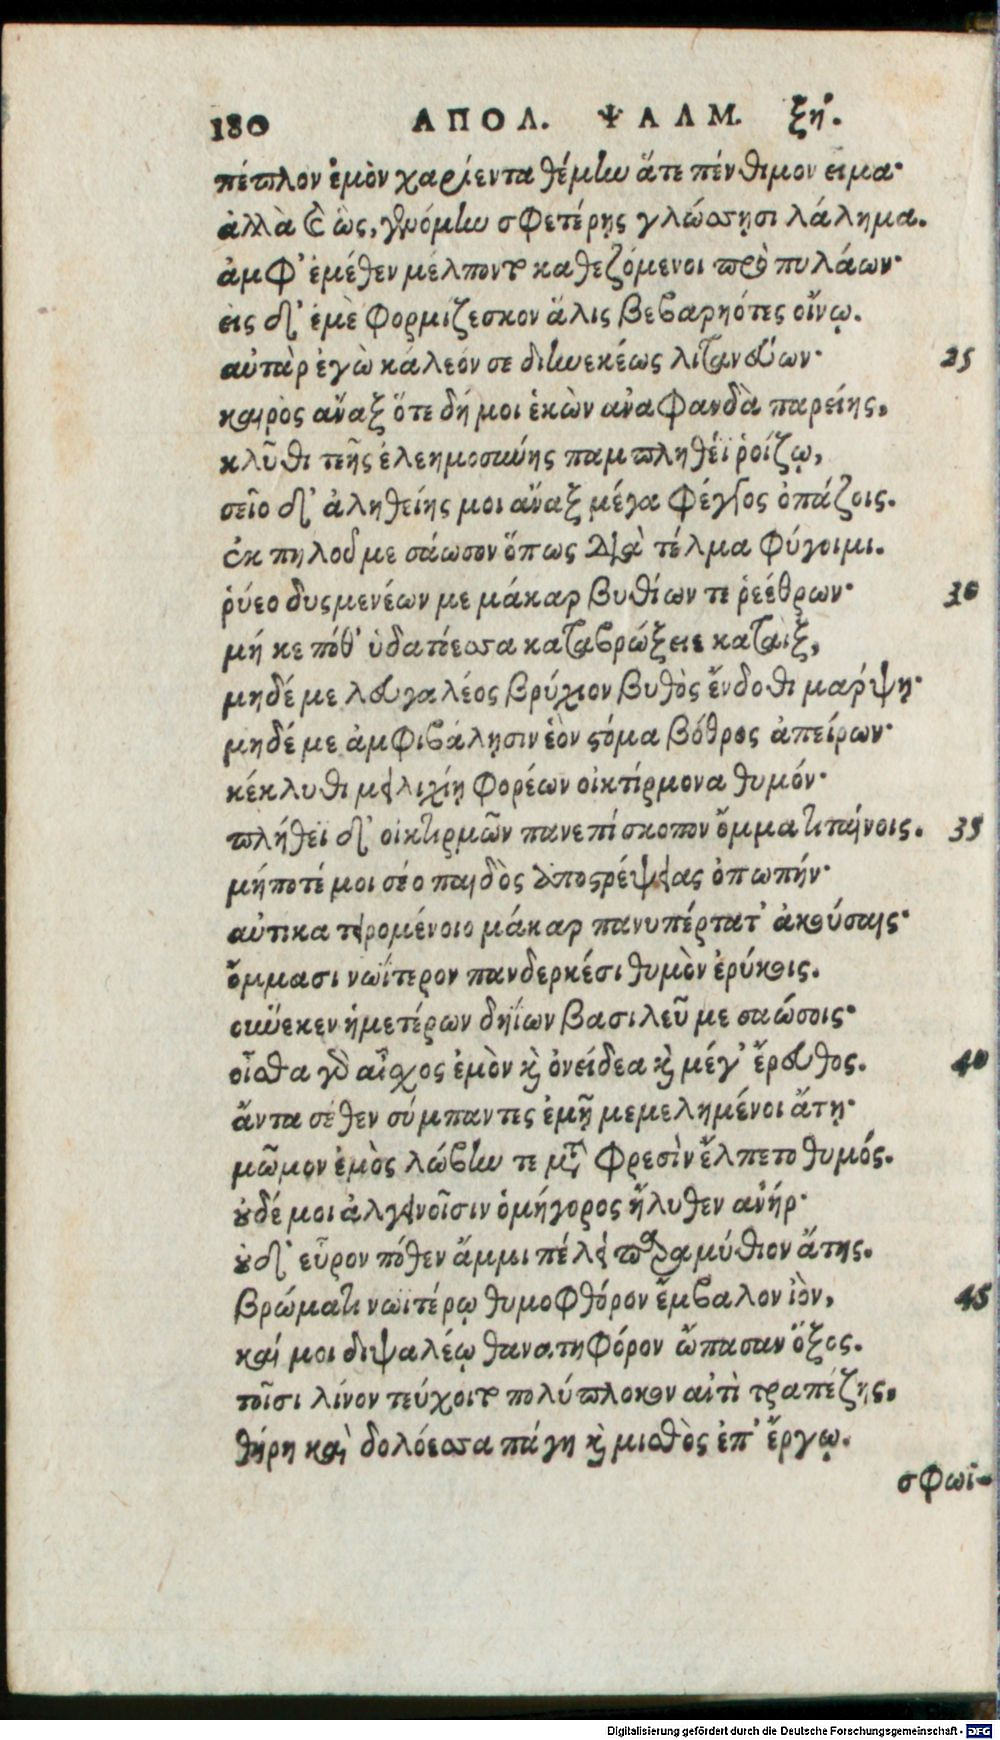 180 ΑΠΟΛ. ΨΑΛΜ. ξή.
πέπλον ἐμὸν χαρίεντα θέμην ἅτε πένθιμον εἷμα·
ἀλλὰ καὶ ὣς, γενόμην σφετέρῃς γλώσσῃσι λάλημα.
ἀμφ' ἐμέθεν μέλποντο καθεζόμενοι πρὸ πυλάων·
εἰς δ' ἐμὲ φορμίζεσκον ἅλις βεβαρηότες οἴνῳ.
αὐτὰρ ἐγὼ κάλεόν σε διηνεκέως λιτανεύων· 25
καιρὸς ἄναξ ὅτε δή μοι ἑκὼν ἀναφανδὰ παρείης.
κλῦθι τεῆς ἐλεημοσύνης παμπληθέϊ ῥοίζῳ,
σεῖο δ' ἀληθείης μοι ἄναξ μέγα φέγγος ὀπάζοις.
ἐκ πηλοῦ με σάωσον ὅπως διὰ τέλμα φύγοιμι.
ῥύεο δυσμενέων με μάκαρ βυθίων τε ῥεέθρων· 30
μή κε πόθ' ὑδατόεσσα καταβρώξειε καταὶξ,
μηδέ με λευγαλέος βρύχιον βυθὸς ἔνδοθι μάρψῃ·
μηδέ με ἀμφιβάλῃσιν ἑὸν στόμα βόθρος ἀπείρων·
κέκλυθι μειλιχίῃ φορέων οἰκτίρμονα θυμόν·
πλήθεϊ δ' οἰκτιρμῶν πανεπίσκοπον ὄμμα τιταίνοις. 35
μήποτέ μοι σέο παιδὸς ἀποστρέψειας ὀπωπήν·
αὐτικα τειρομένοιο μάκαρ πανυπέρτατ' ἀκούσαις·
ὄμμασι νωΐτερον πανδερκέσι θυμὸν ἐρύκοις.
οὕνεκεν ἡμετέρων δηΐων βασιλεῦ με σαώσοις·
οἶσθα γὰρ αἶσχος ἐμὸν καὶ ὀνείδεα καὶ μέγ' ἔρευθος. 40
ἄντα σέθεν σύμπαντες ἐμῇ μεμελημένοι ἄτῃ·
μῶμον ἐμὸς λώβην τε μετὰ φρεσὶν ἔλπετο θυμός.
οὐδέ μοι ἀλγεινοῖσιν ὁμήγορος ἤλυθεν ἀνήρ·
οὐδ' εὗρον πόθεν ἄμμι πέλει παραμύθιον ἄτης.
βρώματι νωϊτέρῳ θυμοφθόρον ἔμβαλον ἰὸν, 45
καί μοι διψαλέῳ θανατηφόρον ὤπασαν ὄξος.
τοῖσι λίνον τεύχοιτο πολύπλοκον ἀντὶ τραπέζης.
θήρη καὶ δολόεσσα πάγη καὶ μισθὸς ἐπ' ἔργῳ.
σφωϊ-
Digitalisierung gefördert durch die Deutsche Forschungsgemeinschaft - DFG